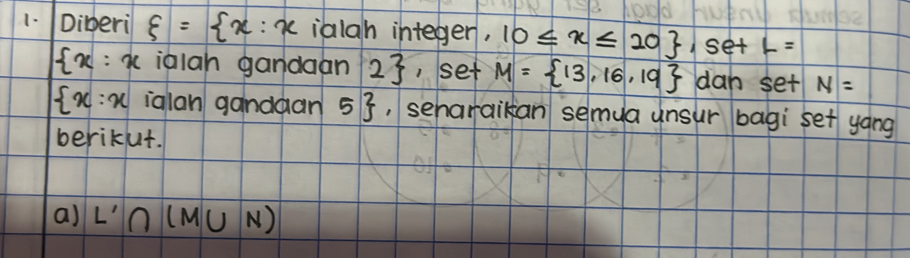 1. Diberi ξ = {x : x ialah integer, 10 ≤ x ≤ 20}, set L =
{x : x ialah gandaan 2}, set M = {13, 16, 19} dan set N =
{x : x ialah gandaan 5}, senaraikan semua unsur bagi set yang
berikut.
a) L' ∩ (M ∪ N)